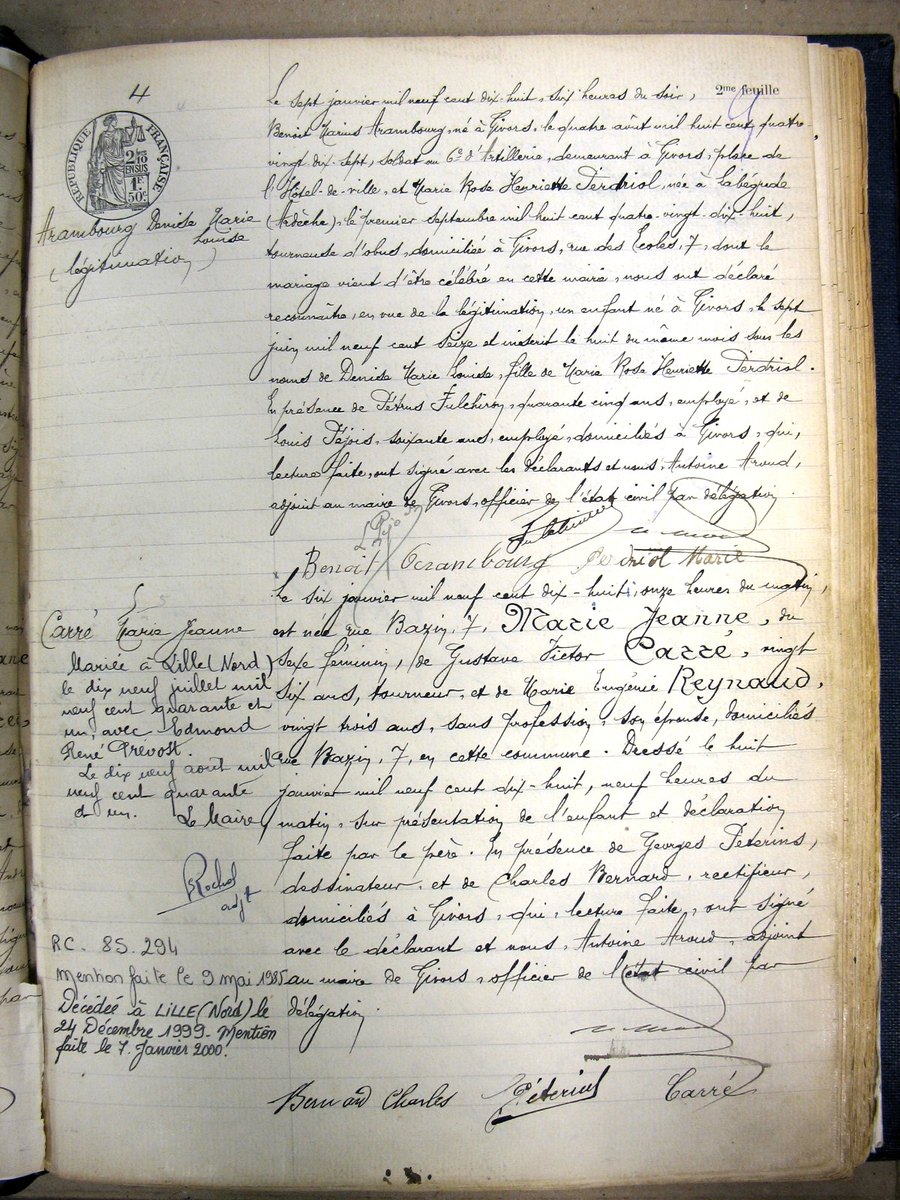 2me feuille
4
RÉPUBLIQUE FRANÇAISE
2/10 EN SUS
1F 50c
Arambourg Denise Marie
Louise
(légitimation)
Le sept janvier mil neuf cent dix-huit, six heures du soir,
Benoît Marius Arambourg, né à Givors, le quatre août mil huit cent quatre-
vingt-dix-sept, soldat au 6e d'Artillerie, demeurant à Givors, place de
l'Hôtel-de-ville, et Marie Rose Henriette Perdriol, née à Labégude
(Ardèche), le premier septembre mil huit cent quatre-vingt-dix-huit,
tourneuse d'obus, domiciliée à Givors, rue des Ecoles, 7, dont le
mariage vient d'être célébré en cette mairie, nous ont déclaré
reconnaître, en vue de la légitimation, un enfant né à Givors, le sept
juin mil neuf cent seize et inscrit le huit du même mois sous les
noms de Denise Marie Louise, fille de Marie Rose Henriette Perdriol.
En présence de Pétrus Fulchiron, quarante cinq ans, employé, et de
Louis Péjois, soixante ans, employé, domiciliés à Givors, qui,
lecture faite, ont signé avec les déclarants et nous, Antoine Aroud,
adjoint au maire de Givors, officier de l'état civil par délégation.
Benoit Arambourg Perdriol Marie
5
Carré Marie Jeanne
Mariée à Lille (Nord)
le dix neuf juillet mil
neuf cent quarante et
un, avec Edmond
René Prevost.
Le dix neuf août mil
neuf cent quarante
et un. Le Maire,
Rochol
adjt
RC. 85.294
mention faite le 9 mai 1985
Décédée à LILLE (Nord) le
24 Décembre 1999. Mention
faite le 7 Janvier 2000.
Le six janvier mil neuf cent dix-huit, onze heures du matin,
est née rue Bazin, 7, Marie Jeanne, du
sexe féminin, de Gustave Victor Carré, vingt
six ans, tourneur, et de Marie Eugénie Reynaud,
vingt trois ans, sans profession, son épouse, domiciliés
rue Bazin, 7, en cette commune. Dressé le huit
janvier mil neuf cent dix-huit, neuf heures du
matin, sur présentation de l'enfant et déclaration
faite par le père. En présence de Georges Péterins,
dessinateur, et de Charles Bernard, rectifieur,
domiciliés à Givors, qui, lecture faite, ont signé
avec le déclarant et nous, Antoine Aroud, adjoint
au maire de Givors, officier de l'état civil par
délégation.
Bernard Charles Péterins Carré